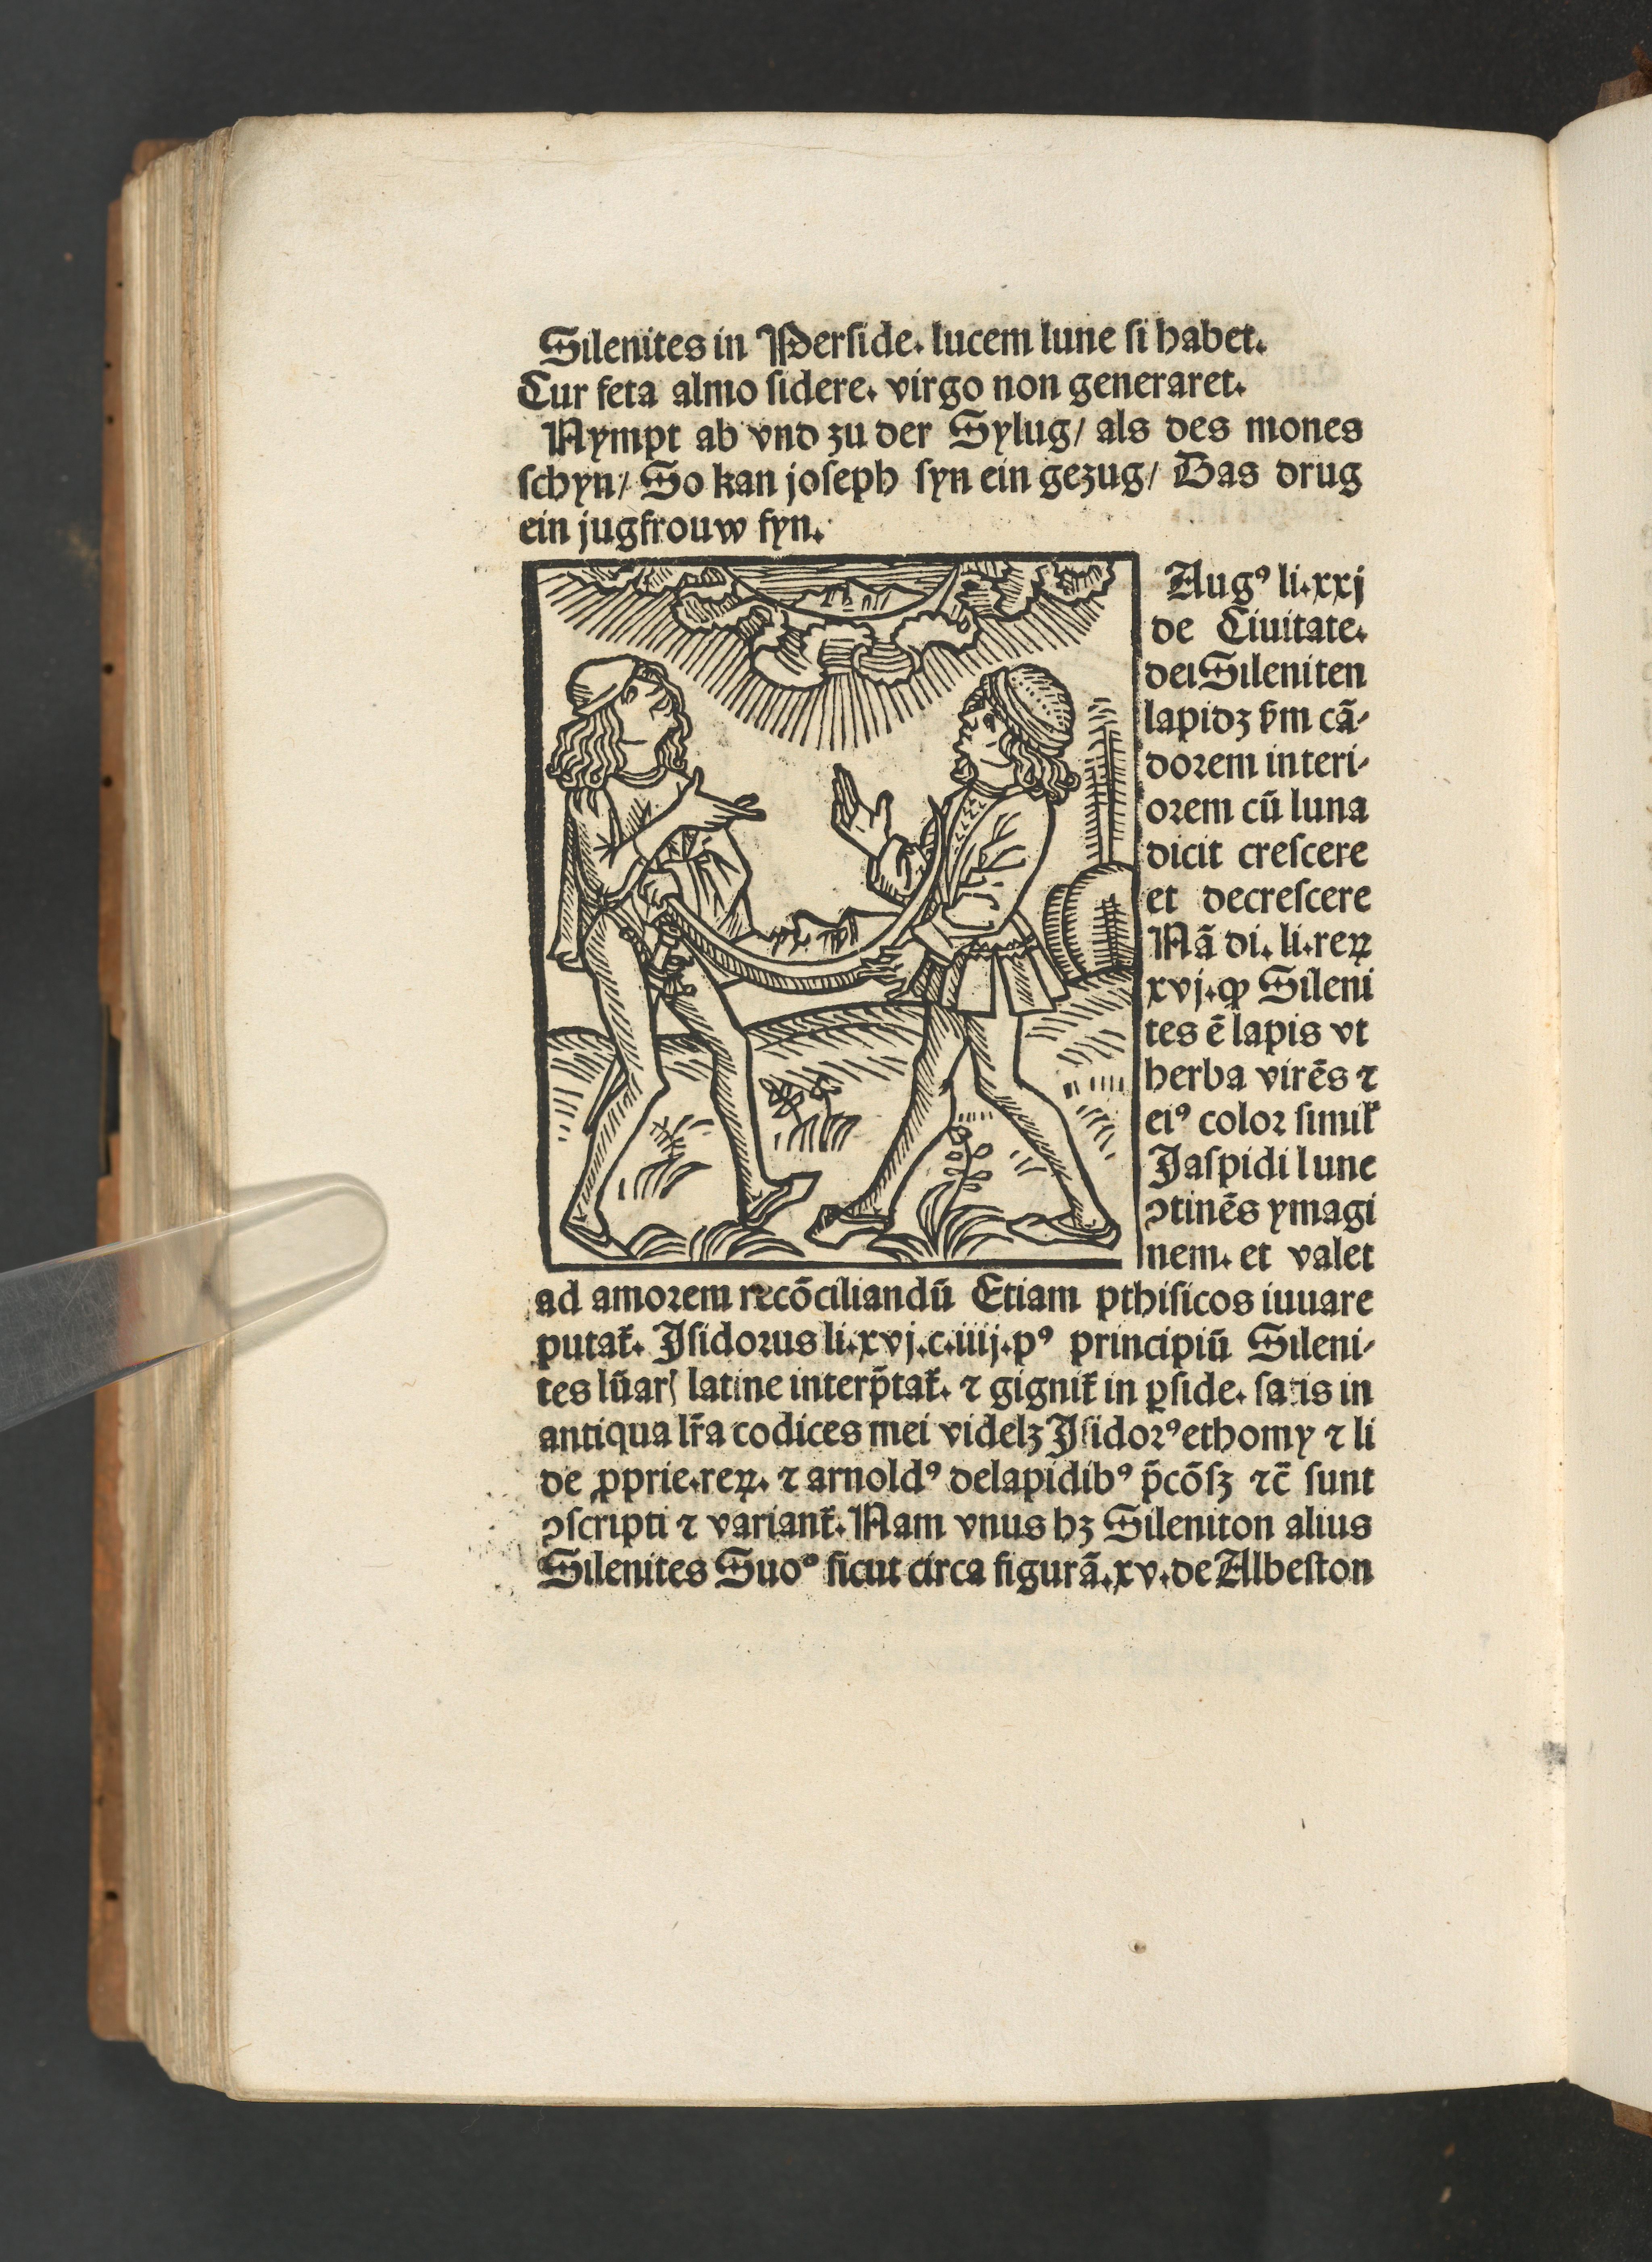 Silenites in Perside. lucem lune si habet.
Cur feta almo sidere. virgo non generaret.
Nympt ab vnd zu der Sylug/ als des mones
schyn/ So kan joseph syn ein gezug/ Das drug
ein jugfrouw fyn.
Augꝰ li.xxj
de Ciuitate.
dei Sileniten
lapidꝫ ẜm cã⸗
dorem interi⸗
orem cũ luna
dicit crescere
et decrescere
Nã di. li. reꝝ
xvj. ꝙ Sileni
tes ẽ lapis vt
herba virẽs ⁊
eiꝰ color simil̛
Jaspidi lune
ↄtinẽs ymagi
nem. et valet
ad amorem recõciliandũ Etiam pthisicos iuuare
putat̛. Jsidorus li. xvj. c. iiij. pꝰ principiũ Sileni⸗
tes lũarꝭ latine interp̃tat̛. ⁊ gignit̛ in ꝑside. satis in
antiqua lr̃a codices mei videlꝫ Jsidorꝰ ethomy ⁊ li
de ꝓprie. reꝝ. ⁊ arnoldꝰ delapidibꝰ p̃cõsꝫ ⁊c̃ sunt
ↄscripti ⁊ variant̛. Nam vnus hꝫ Sileniton alius
Silenites Suoº sicut circa figurã. xv. de Albeston